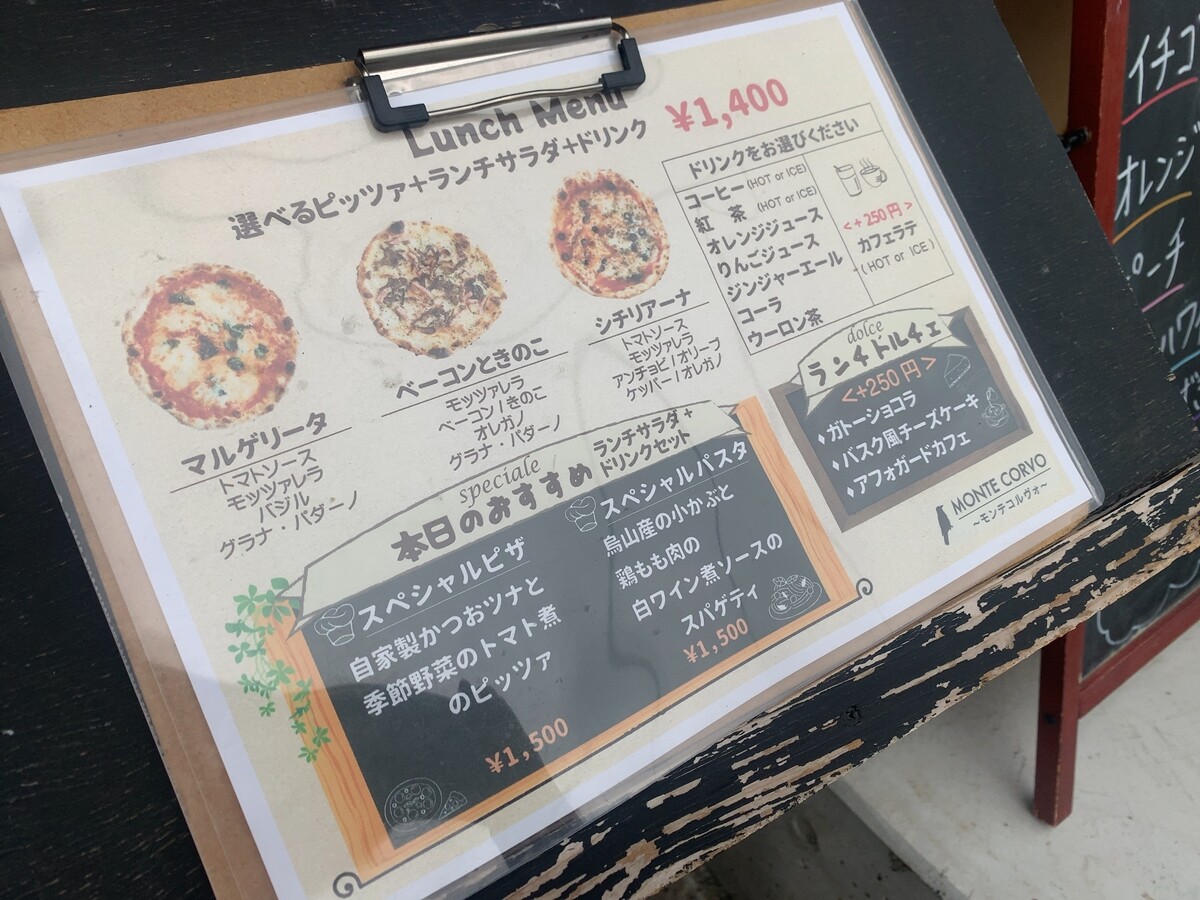 Lunch Menu ¥1,400
選べるピッツァ+ランチサラダ+ドリンク
マルゲリータ
トマトソース
モッツァレラ
バジル
グラナ・パダーノ
ベーコンときのこ
モッツァレラ
ベーコン/きのこ
オレガノ
グラナ・パダーノ
シチリアーナ
トマトソース
モッツァレラ
アンチョビ/オリーブ
ケッパー/オレガノ
ドリンクをお選びください
コーヒー(HOT or ICE)
紅 茶 (HOT or ICE)
オレンジジュース
りんごジュース
ジンジャーエール
コーラ
ウーロン茶
<+250円>
カフェラテ
(HOT or ICE)
dolce
ランチドルチェ
<+250円>
♦ガトーショコラ
♦バスク風チーズケーキ
♦アフォガードカフェ
speciale
本日のおすすめ
ランチサラダ+
ドリンクセット
スペシャルピザ
自家製かつおツナと
季節野菜のトマト煮
のピッツァ
¥1,500
スペシャルパスタ
烏山産の小かぶと
鶏もも肉の
白ワイン煮ソースの
スパゲティ
¥1,500
MONTE CORVO
~モンテコルヴォ~
イチゴ
オレンジ
ピーチ